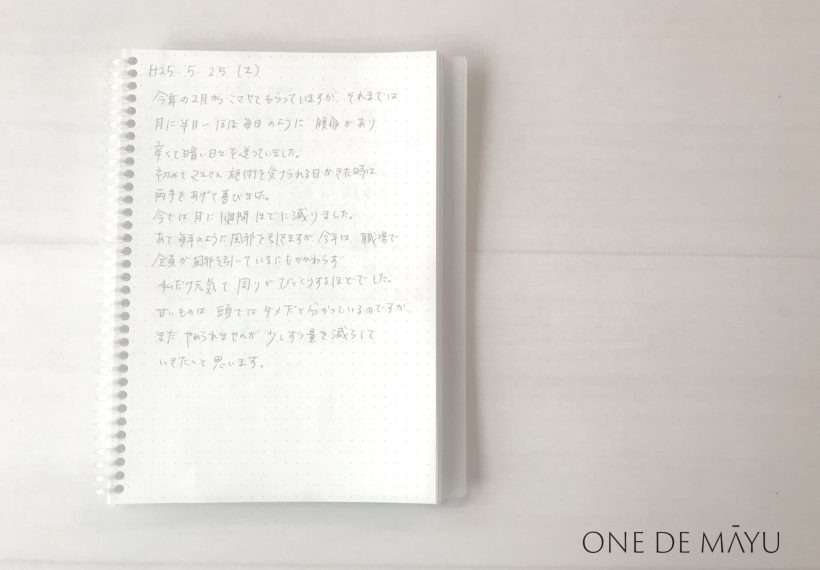 H25.5.25(土)
今年の2月から こさせてもらっていますが、それまでは
月に半月〜ほぼ毎日のように 頭痛があり
辛くて暗い日々を送っていました。
初めて 施術を受けられる日がきた時は
両手をあげて喜びました。
今では 月に 1週間ほどに減りました。
あと毎年のように風邪を引きますが 今年は、職場で
全員が風邪を引いているにもかかわらず
私だけ元気で 周りがびっくりするほどでした。
甘いものは 頭ではダメだと分かっているのですが、
まだ やめられませんが 少しずつ量を減らして
いきたいと思います。
ONE DE MĀYU